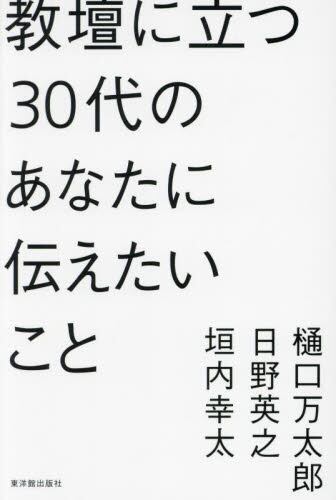 教壇に立つ
30代の
あなたに
伝えたい
こと
樋口万太郎
日野英之
垣内幸太
東洋館出版社